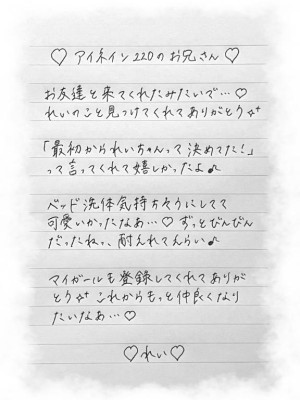 ♡ アイネイン220のお兄さん ♡
お友達と来てくれたみたいで…♡
れいのこと見つけてくれてありがとう✨
「最初かられいちゃんって決めてた!」
って言ってくれて嬉しかったよ♪
ベッド洗体気持ちそうにしてて
可愛いかったなあ…♡ ずっとびんびん
だったねっ、耐えれてえらい♪
マイガールも登録してくれてありが
とう✨ これからもっと仲良くなり
たいなあ…♡
♡れい♡